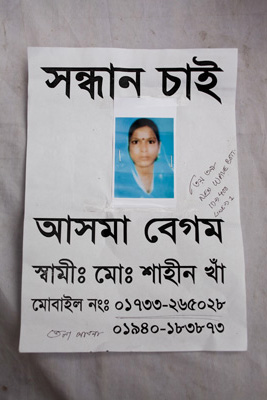 সন্ধান চাই
আসমা বেগম
স্বামীঃ মোঃ শাহীন খাঁ
মোবাইল নংঃ ০১৭৩৩-২৬৫০২৮
০১৯৪০-১৮৩৮৭৩
NEW WAVE